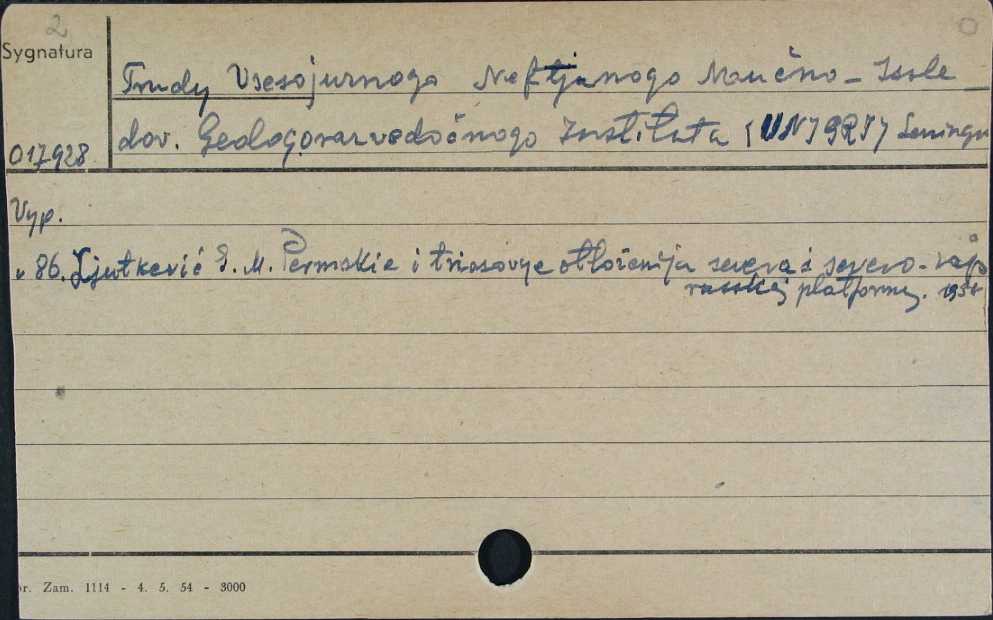 2
Sygnatura
Trudy Vsesojurnogo Neftjanogo Naučno - Issle
dov. Geologorazvedočnogo Instituta (VNIGRI) Leningr
017928
Vyp.
86. Ljutkevič E. M. Permskie i triasovye otloženija severa i severo-zap
russkoj platformy.
r. Zam. 1114 - 4. 5. 54 - 3000